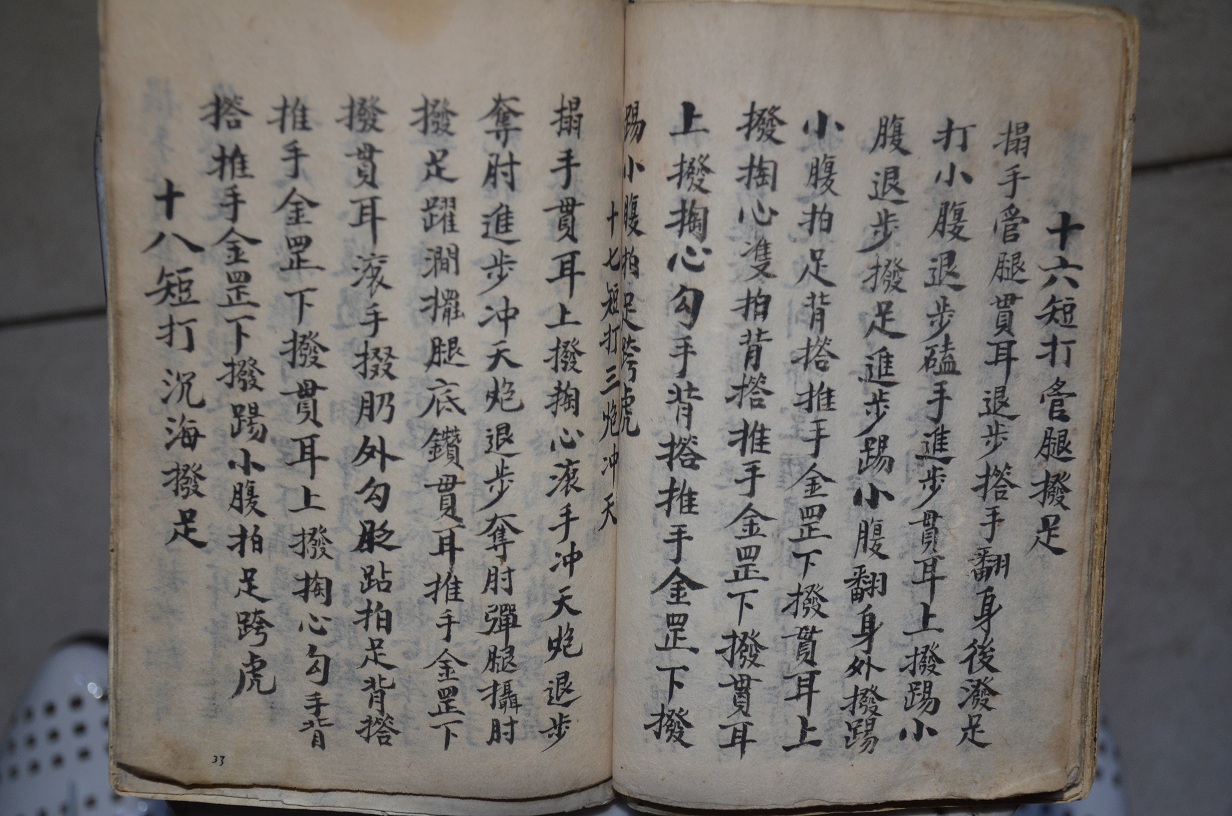 十六短打膏腿撥足
搨手膏腿貫耳退步撘手翻身後潑足
打小腹退步磕手進步貫耳上撥踢小
腹退步撥足進步踢小腹翻身外撥踢
小腹拍足背撘推手金罡下撥貫耳上
撥掏心隻拍背撘推手金罡下撥貫耳
上撥掏心勾手背撘推手金罡下撥
踢小腹拍足跨虎
十七短打三炮冲天
搨手貫耳上撥掏心滚手冲天炮退步
奪肘進步冲天炮退步奪肘彈腿攝肘
撥足躍澗擺腿底鑽貫耳推手金罡下
撥貫耳滚手掇肕外勾跕拍足背撘
推手金罡下撥貫耳上撥掏心勾手背
撘推手金罡下撥踢小腹拍足跨虎
十八短打沉海撥足
33